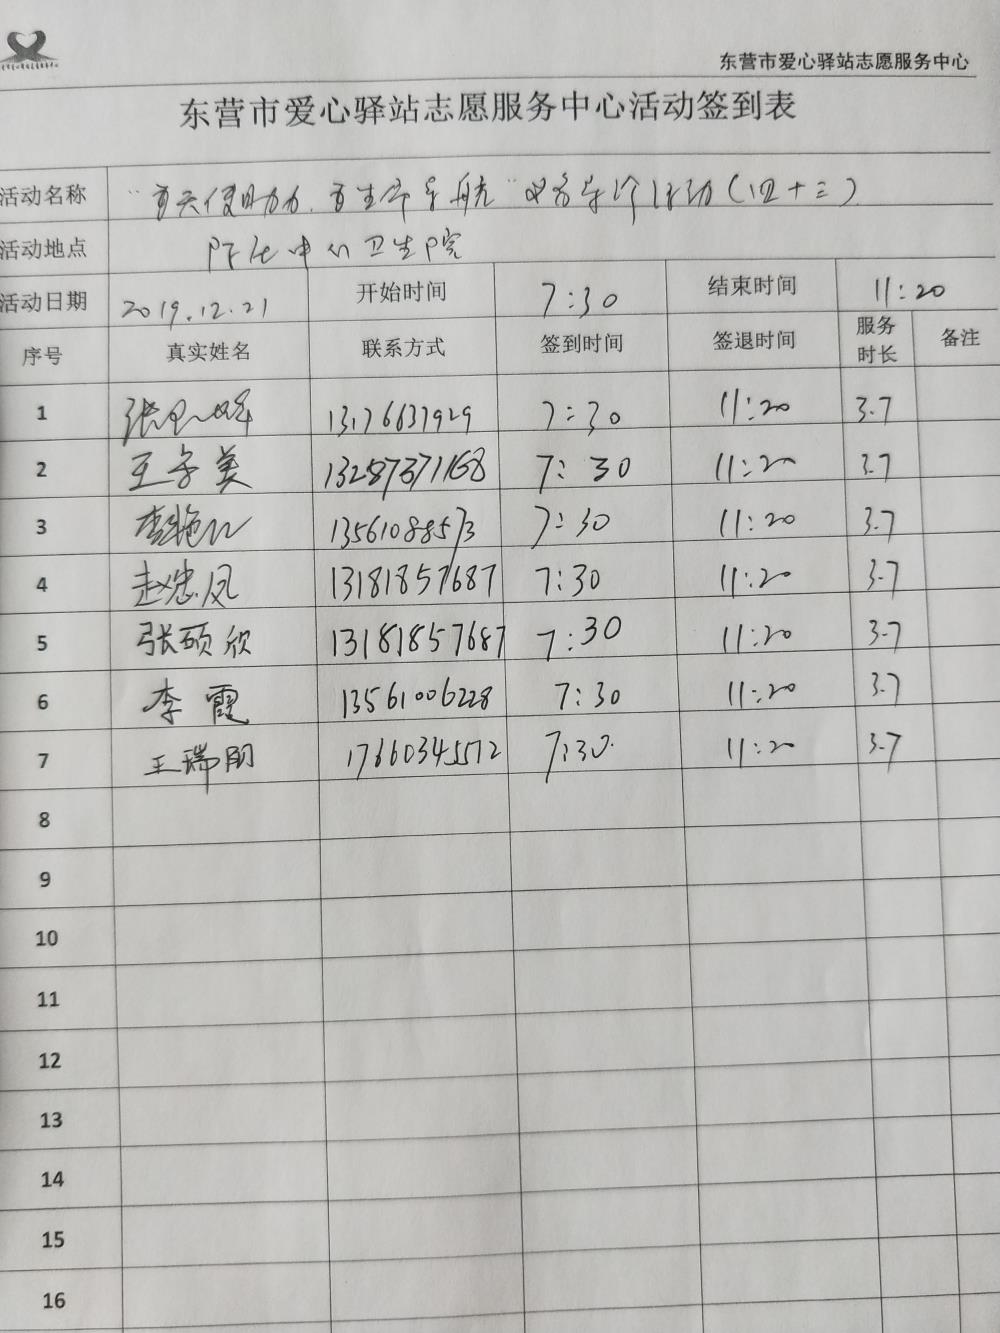 东营市爱心驿站志愿服务中心
东营市爱心驿站志愿服务中心活动签到表
活动名称 "为天使助力，为生命导航"义务导诊活动(四十三)
活动地点 中心卫生院
活动日期 2019.12.21 开始时间 7:30 结束时间 11:20
序号 真实姓名 联系方式 签到时间 签退时间 服务时长 备注
1 张 13176631929 7:30 11:20 3.7
2 王 美 13287371168 7:30 11:20 3.7
3 李艳 13561088573 7:30 11:20 3.7
4 赵忠凤 13181857687 7:30 11:20 3.7
5 张硕欣 13181857687 7:30 11:20 3.7
6 李霞 13561006228 7:30 11:20 3.7
7 王瑞朋 17660345572 7:30 11:20 3.7
8
9
10
11
12
13
14
15
16